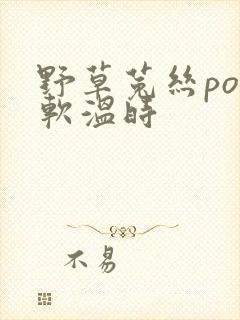 野草菟絲po
軟溫時
不易